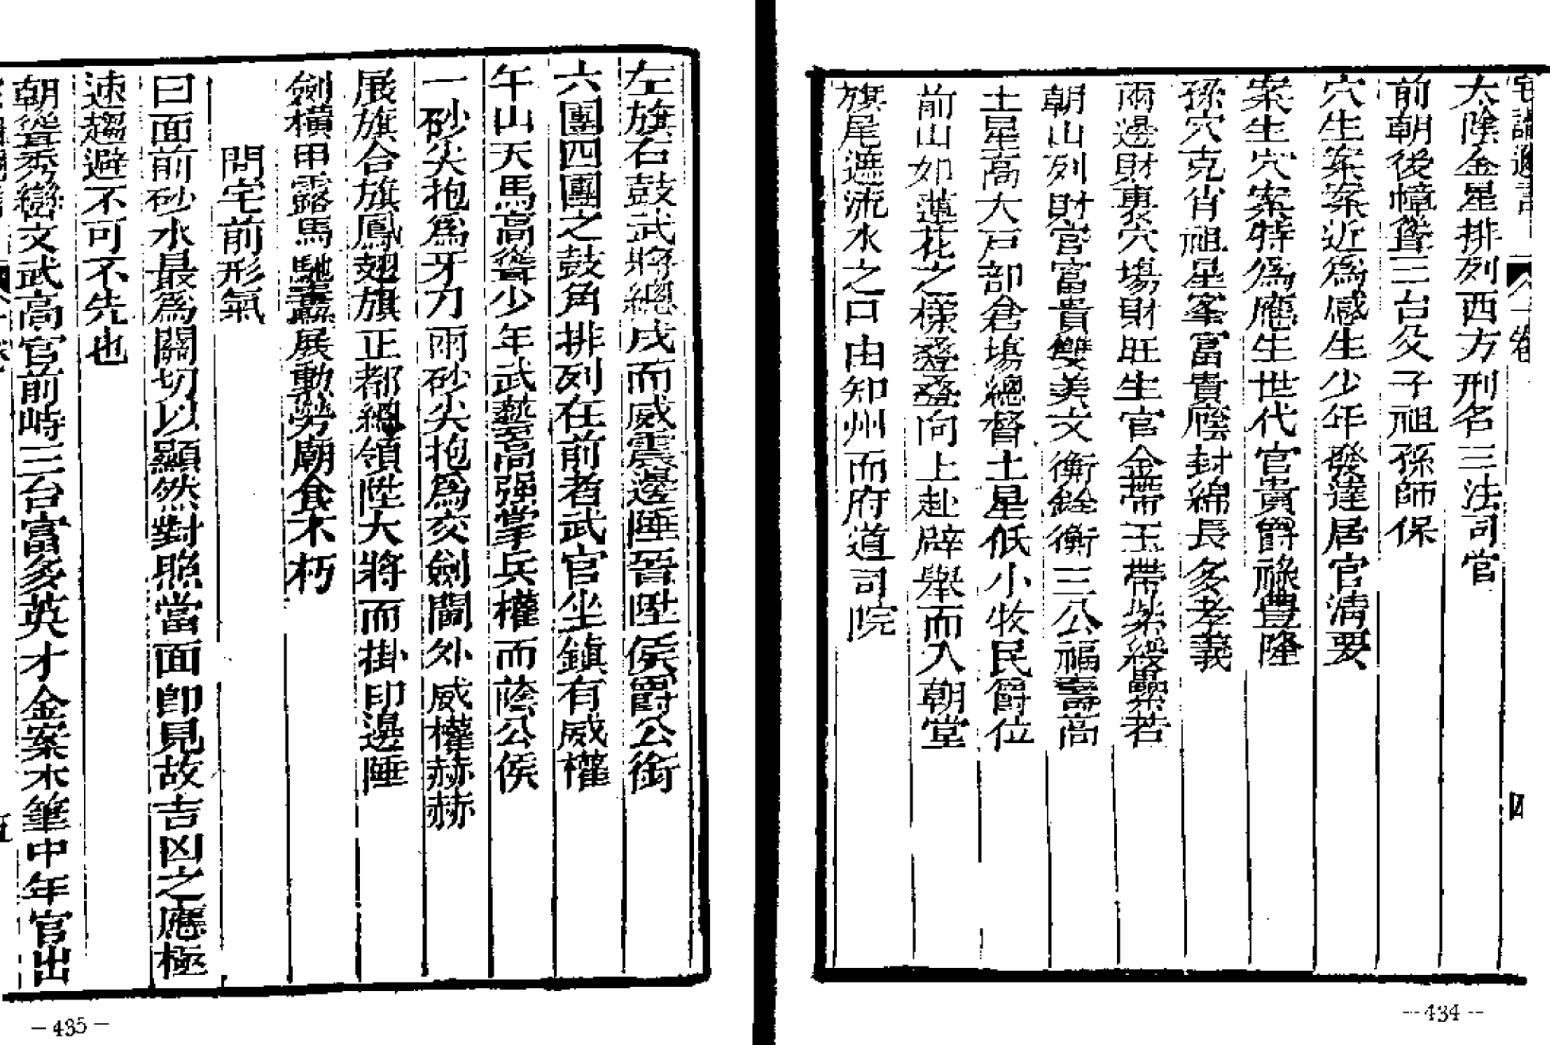 太陰金星排列西方刑名三法司官
前朝後幛聳三台父子祖孫師保
穴生案案近為感生少年發達居官清要
案生穴案特為應生世代官貴爵祿豊隆
孫穴克肖祖星峯富貴廕封綿長多孝義
兩邊財裹穴塲財旺生官金帶玉帶紫綬纍若
朝山列財官富貴雙美文衡銓衡三公福壽高
土星高大戶部倉塲總督土星低小牧民爵位
前山如蓮花之樣叠叠向上赴辟舉而入朝堂
旗尾遮流水之口由知州而府道司院
四
—434—
左旗右鼓武將總戎而威震邊陲晉陞侯爵公銜
六團四團之鼓角排列在前者武官坐鎮有威權
午山天馬高聳少年武藝高强掌兵權而蔭公侯
一砂尖抱為牙刀兩砂尖抱為交劍閫外威權赫赫
展旗合旗鳳翅旗正都總領陞大將而掛印邊陲
劍橫甲露馬馳纛展動勞廟食不朽
問宅前形氣
曰面前砂水最為關切以顯然對照當面即見故吉凶之應極
速趨避不可不先也
朝聳秀巒文武高官前峙三台富多英才金案木筆中年官出
—435—